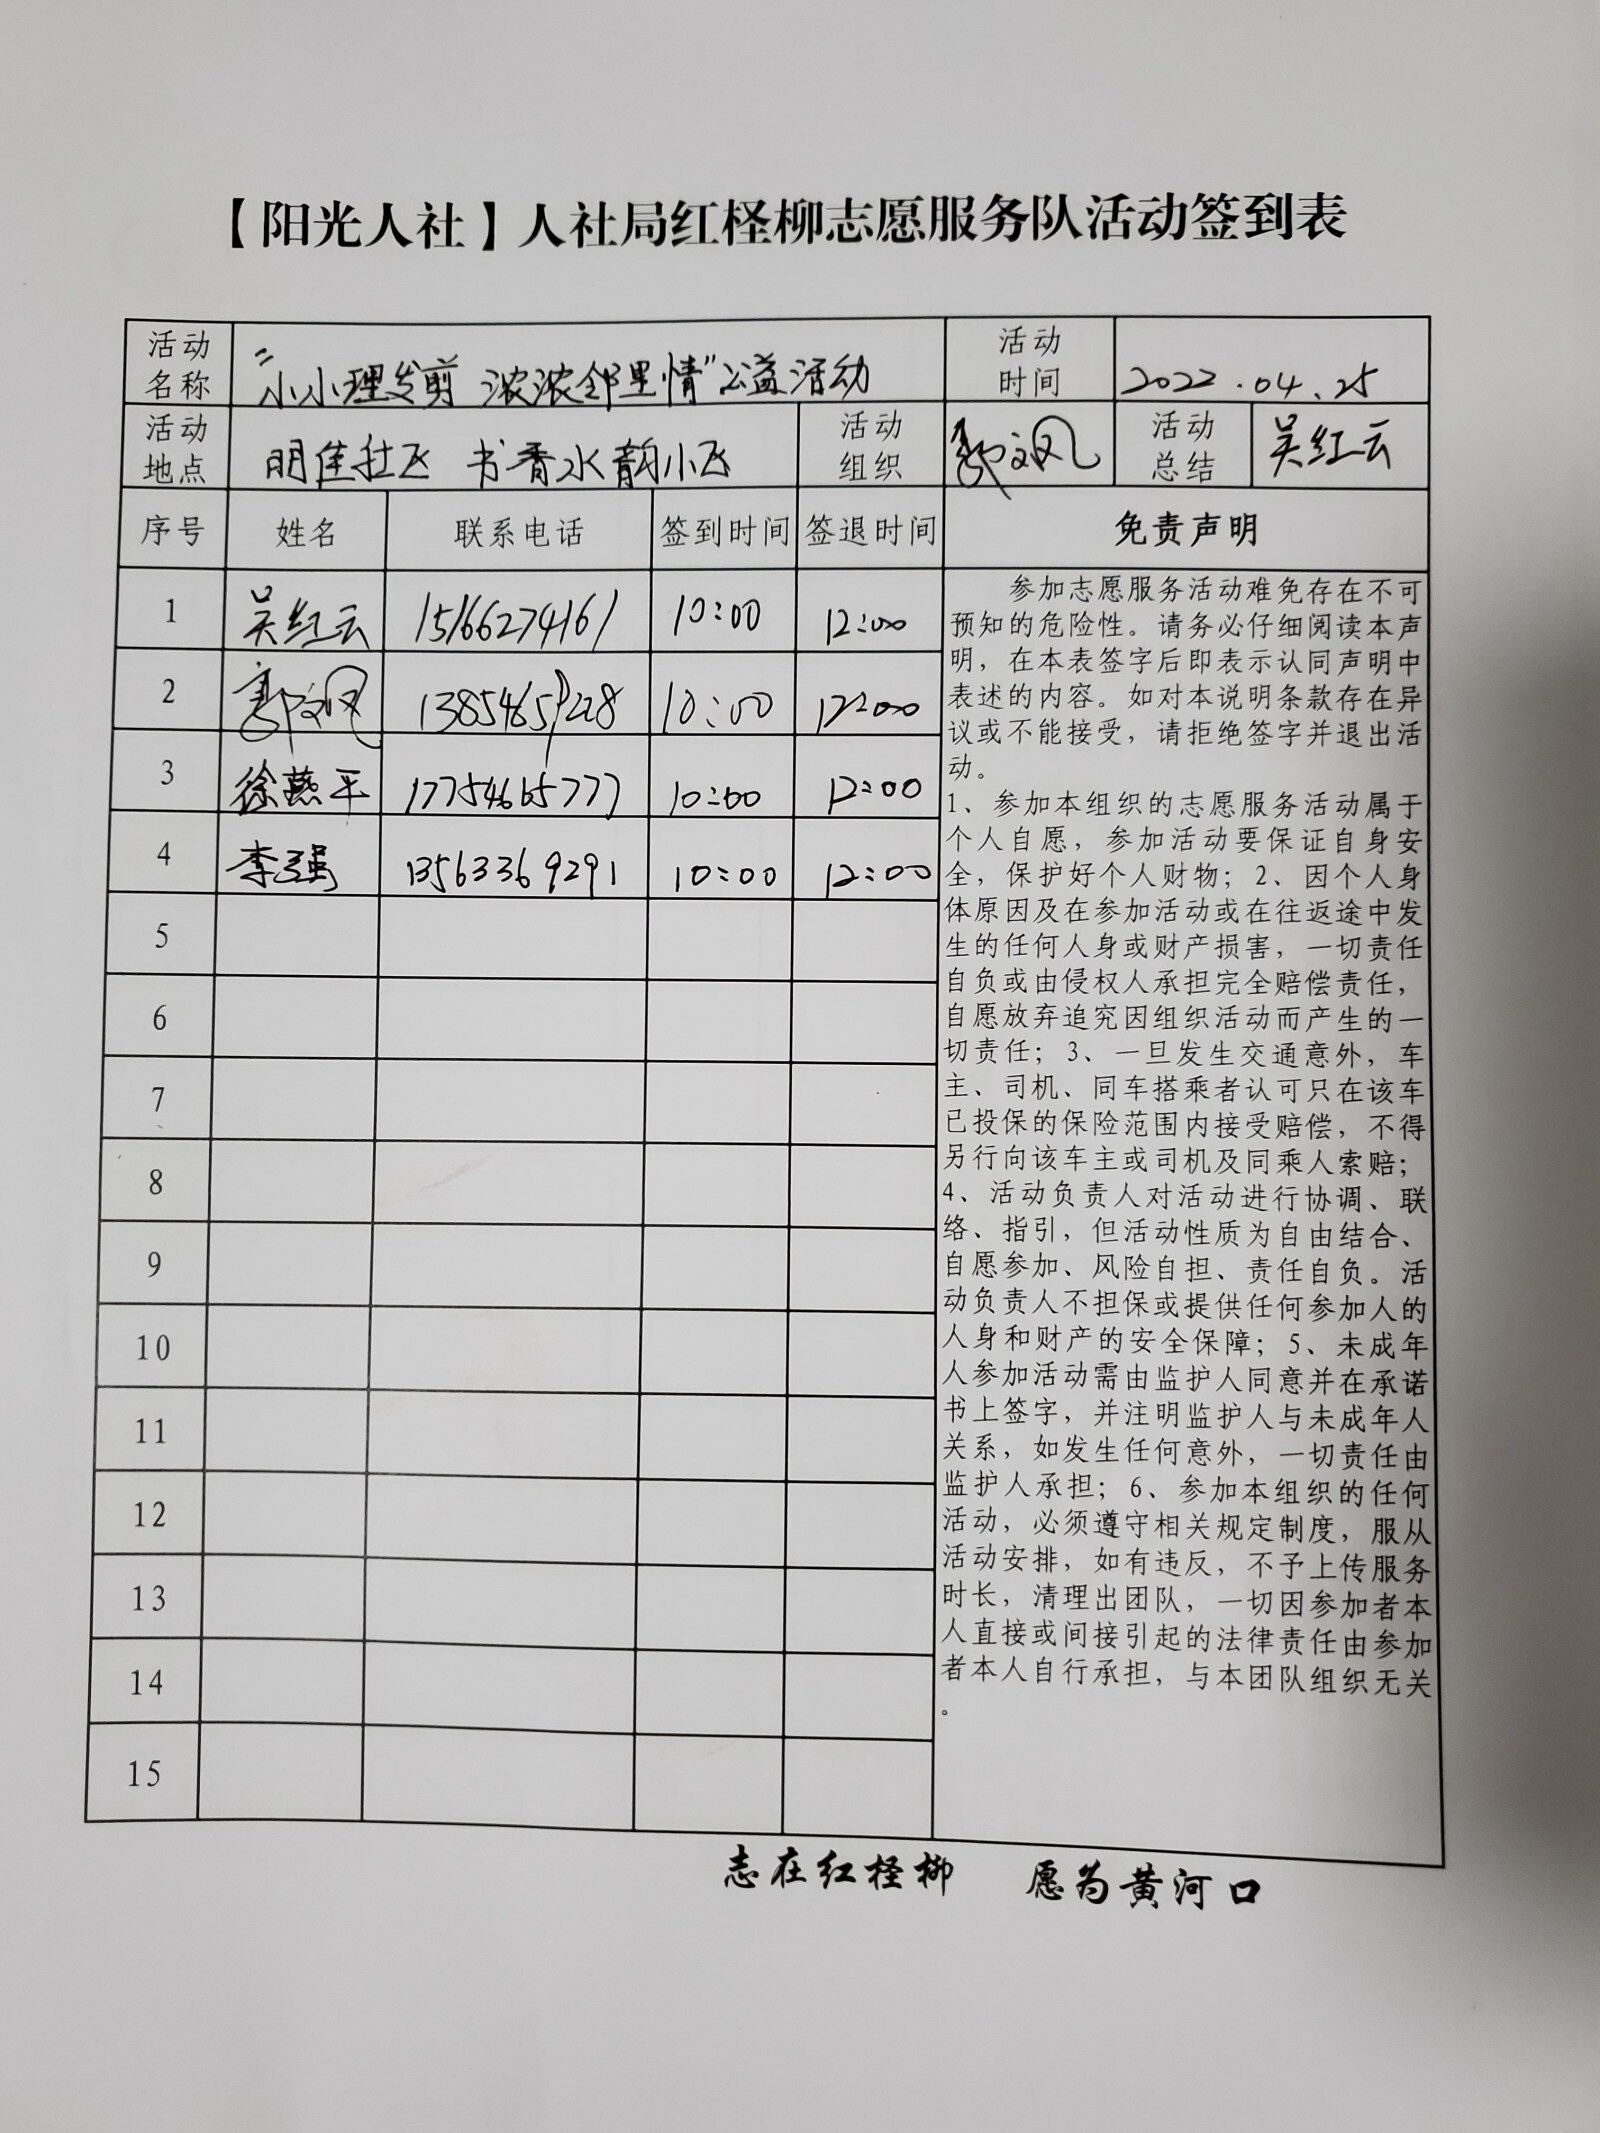 【阳光人社】人社局红柽柳志愿服务队活动签到表
活动名称 “小小理发剪 浓浓邻里情”公益活动 活动时间 2022.04.25
活动地点 明佳社区 书香水韵小区 活动组织 郭文凤 活动总结 吴红云
序号 姓名 联系电话 签到时间 签退时间 免责声明
1 吴红云 15166274161 10:00 12:00
2 郭文凤 13854659228 10:00 12:00
3 徐燕平 17754665777 10:00 12:00
4 李强 13563369291 10:00 12:00
5
6
7
8
9
10
11
12
13
14
15
参加志愿服务活动难免存在不可
预知的危险性。请务必仔细阅读本声
明，在本表签字后即表示认同声明中
表述的内容。如对本说明条款存在异
议或不能接受，请拒绝签字并退出活
动。
1、参加本组织的志愿服务活动属于
个人自愿，参加活动要保证自身安
全，保护好个人财物；2、因个人身
体原因及在参加活动或在往返途中发
生的任何人身或财产损害，一切责任
自负或由侵权人承担完全赔偿责任，
自愿放弃追究因组织活动而产生的一
切责任；3、一旦发生交通意外，车
主、司机、同车搭乘者认可只在该车
已投保的保险范围内接受赔偿，不得
另行向该车主或司机及同乘人索赔；
4、活动负责人对活动进行协调、联
络、指引，但活动性质为自由结合、
自愿参加、风险自担、责任自负。活
动负责人不担保或提供任何参加人的
人身和财产的安全保障；5、未成年
人参加活动需由监护人同意并在承诺
书上签字，并注明监护人与未成年人
关系，如发生任何意外，一切责任由
监护人承担；6、参加本组织的任何
活动，必须遵守相关规定制度，服从
活动安排，如有违反，不予上传服务
时长，清理出团队，一切因参加者本
人直接或间接引起的法律责任由参加
者本人自行承担，与本团队组织无关
。
志在红柽柳 愿为黄河口